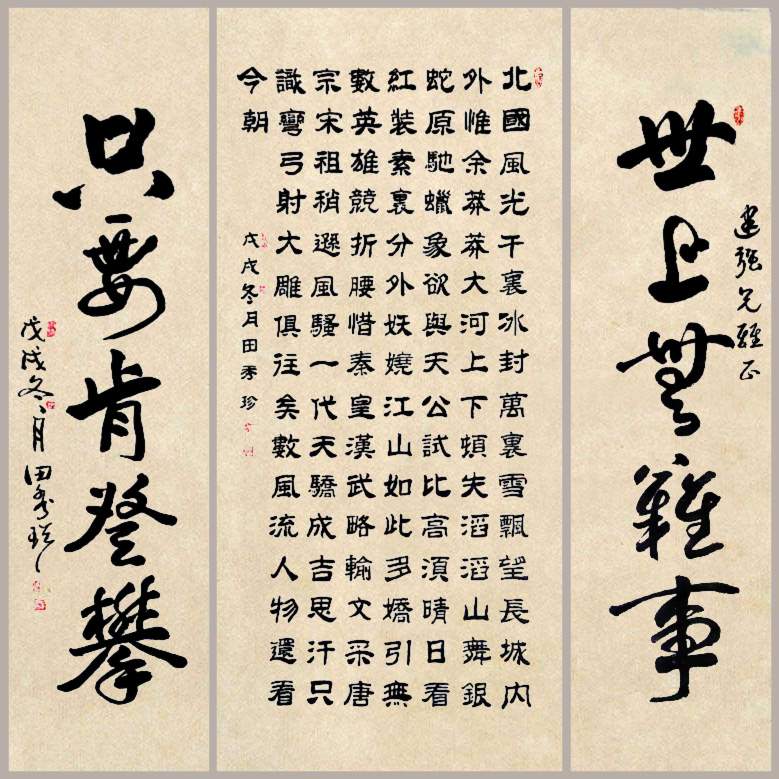 世上無難事
建強兄雅正
北國風光千裏冰封萬裏雪飄望長城内
外惟余莽莽大河上下頓失滔滔山舞銀
蛇原馳蠟象欲與天公試比高須晴日看
紅裝素裹分外妖嬈江山如此多嬌引無
數英雄競折腰惜秦皇漢武略輸文采唐
宗宋祖稍遜風騷一代天驕成吉思汗只
識彎弓射大雕俱往矣數風流人物還看
今朝
戊戌冬月田秀珍
只要肯登攀
戊戌冬月田秀珍